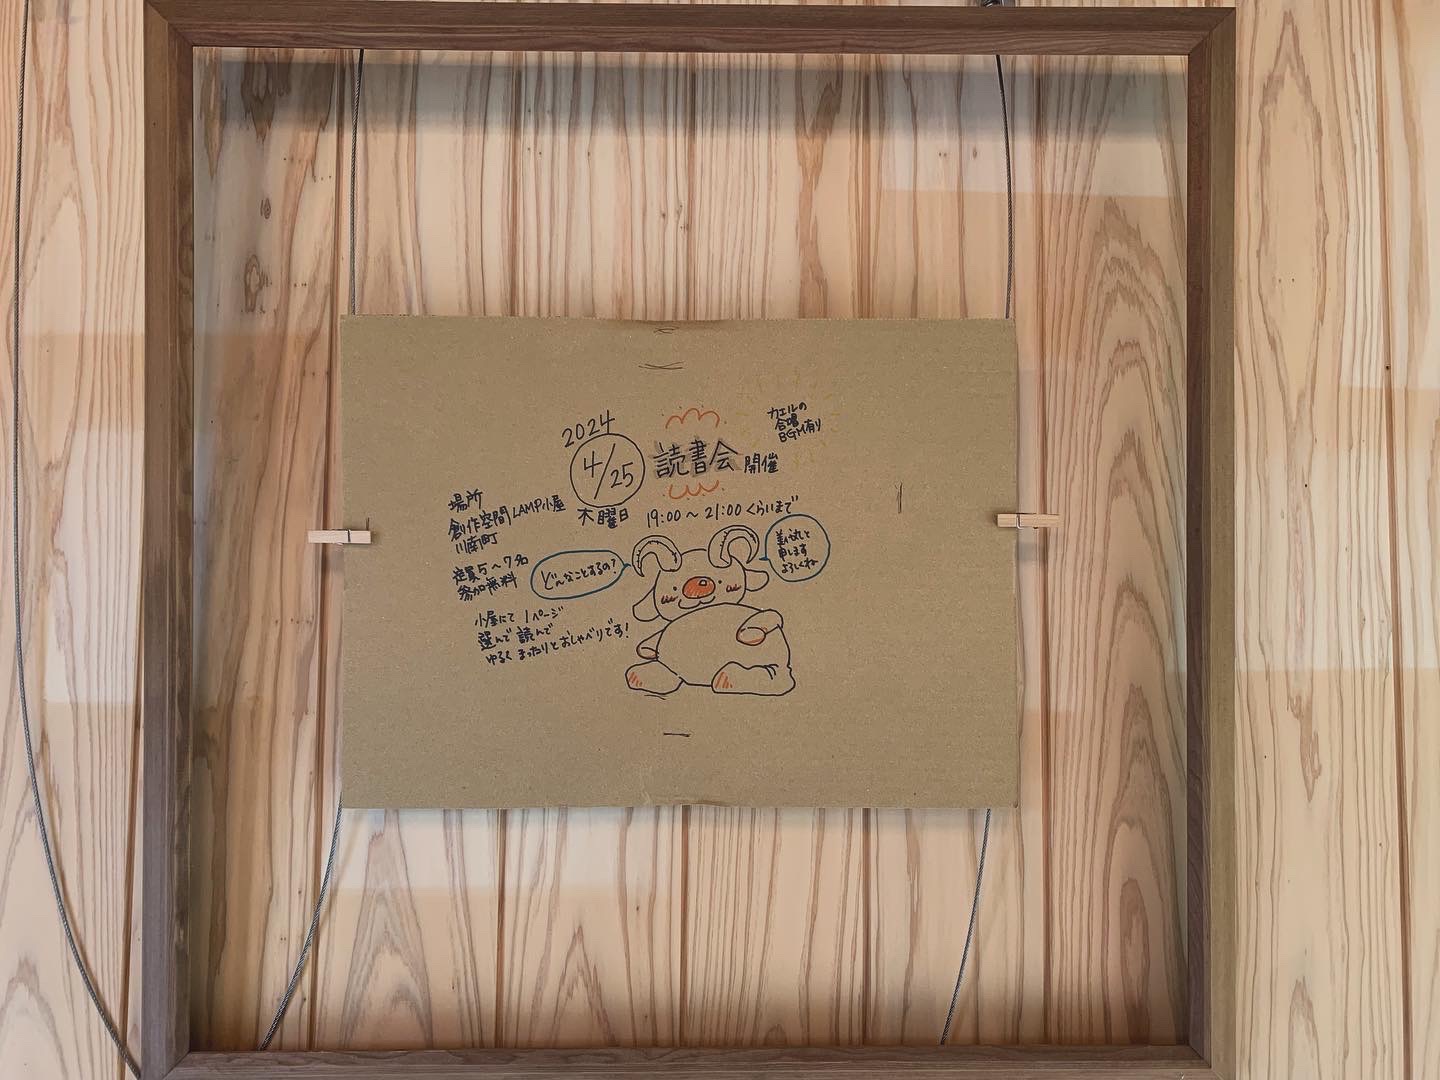 2024
4/25
木曜日
読書会 開催
カエルの
合唱
BGM有り
19:00～21:00くらいまで
場所
創作空間LAMP小屋
川南町
定員5～7名
参加無料
どんなことするの?
と
申します
よろしくね
小屋にて 1ページ
選んで 読んで
ゆるく まったりとおしゃべりです!